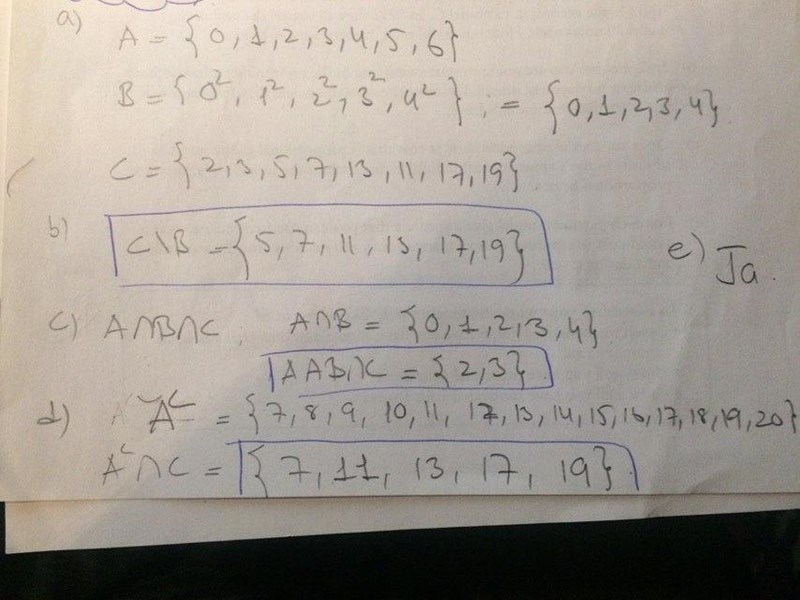 a) A = {0, 1, 2, 3, 4, 5, 6}
B = {0², 1², 2², 3², 4²} ; = {0, 1, 2, 3, 4}.
C = {2, 3, 5, 7, 13, 11, 17, 19}.
b) C\B = {5, 7, 11, 13, 17, 19}
e) Ja.
c) A∩B∩C. A∩B = {0, 1, 2, 3, 4}
A∩B∩C = {2, 3}.
d) Aᶜ = {7, 8, 9, 10, 11, 12, 13, 14, 15, 16, 17, 18, 19, 20}
Aᶜ∩C = {7, 11, 13, 17, 19}.